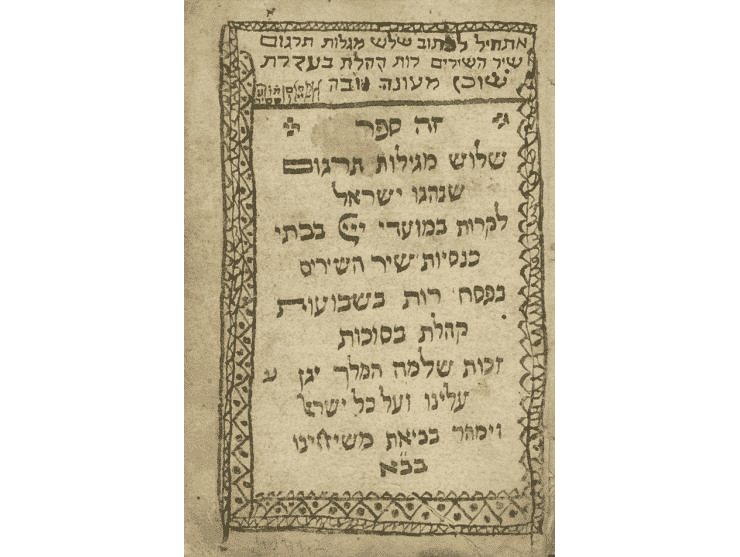 א
אתחיל לכתוב שלש מגלות תרגום
שיר השירים רות קהלת בעזרת
שוכן מעונה
זה ספר
שלוש מגילות תרגום
שנהגו ישראל
לקרות במועדי יי בבתי
כנסיות שיר השירים
בפסח רות בשבועות
קהלת בסוכות
זכות שלמה המלך יגן ע
עלינו ועל כל ישרא
וימהר בביאת משיחינו
בבא